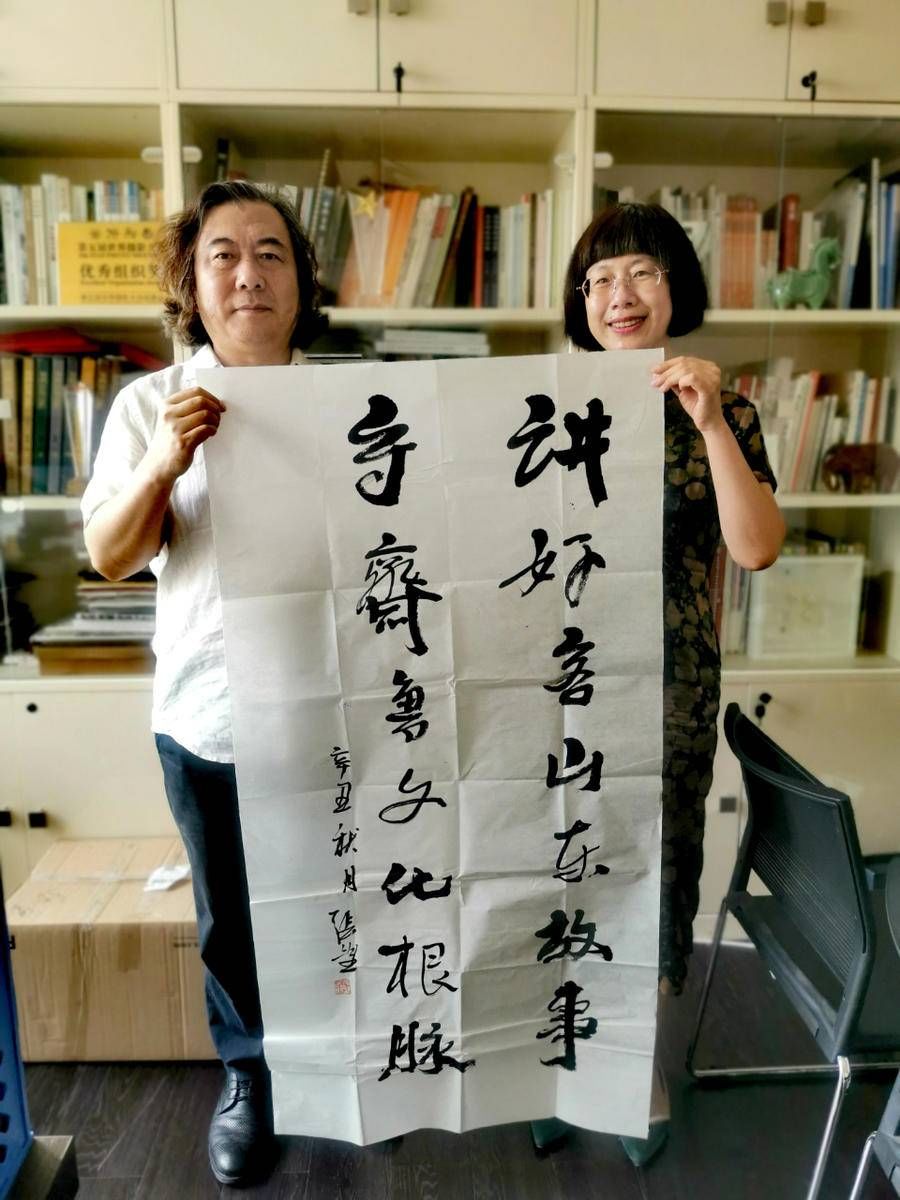 讲好客山东故事
守齋鲁文化根脉
辛丑秋月 张望
优秀组织奖